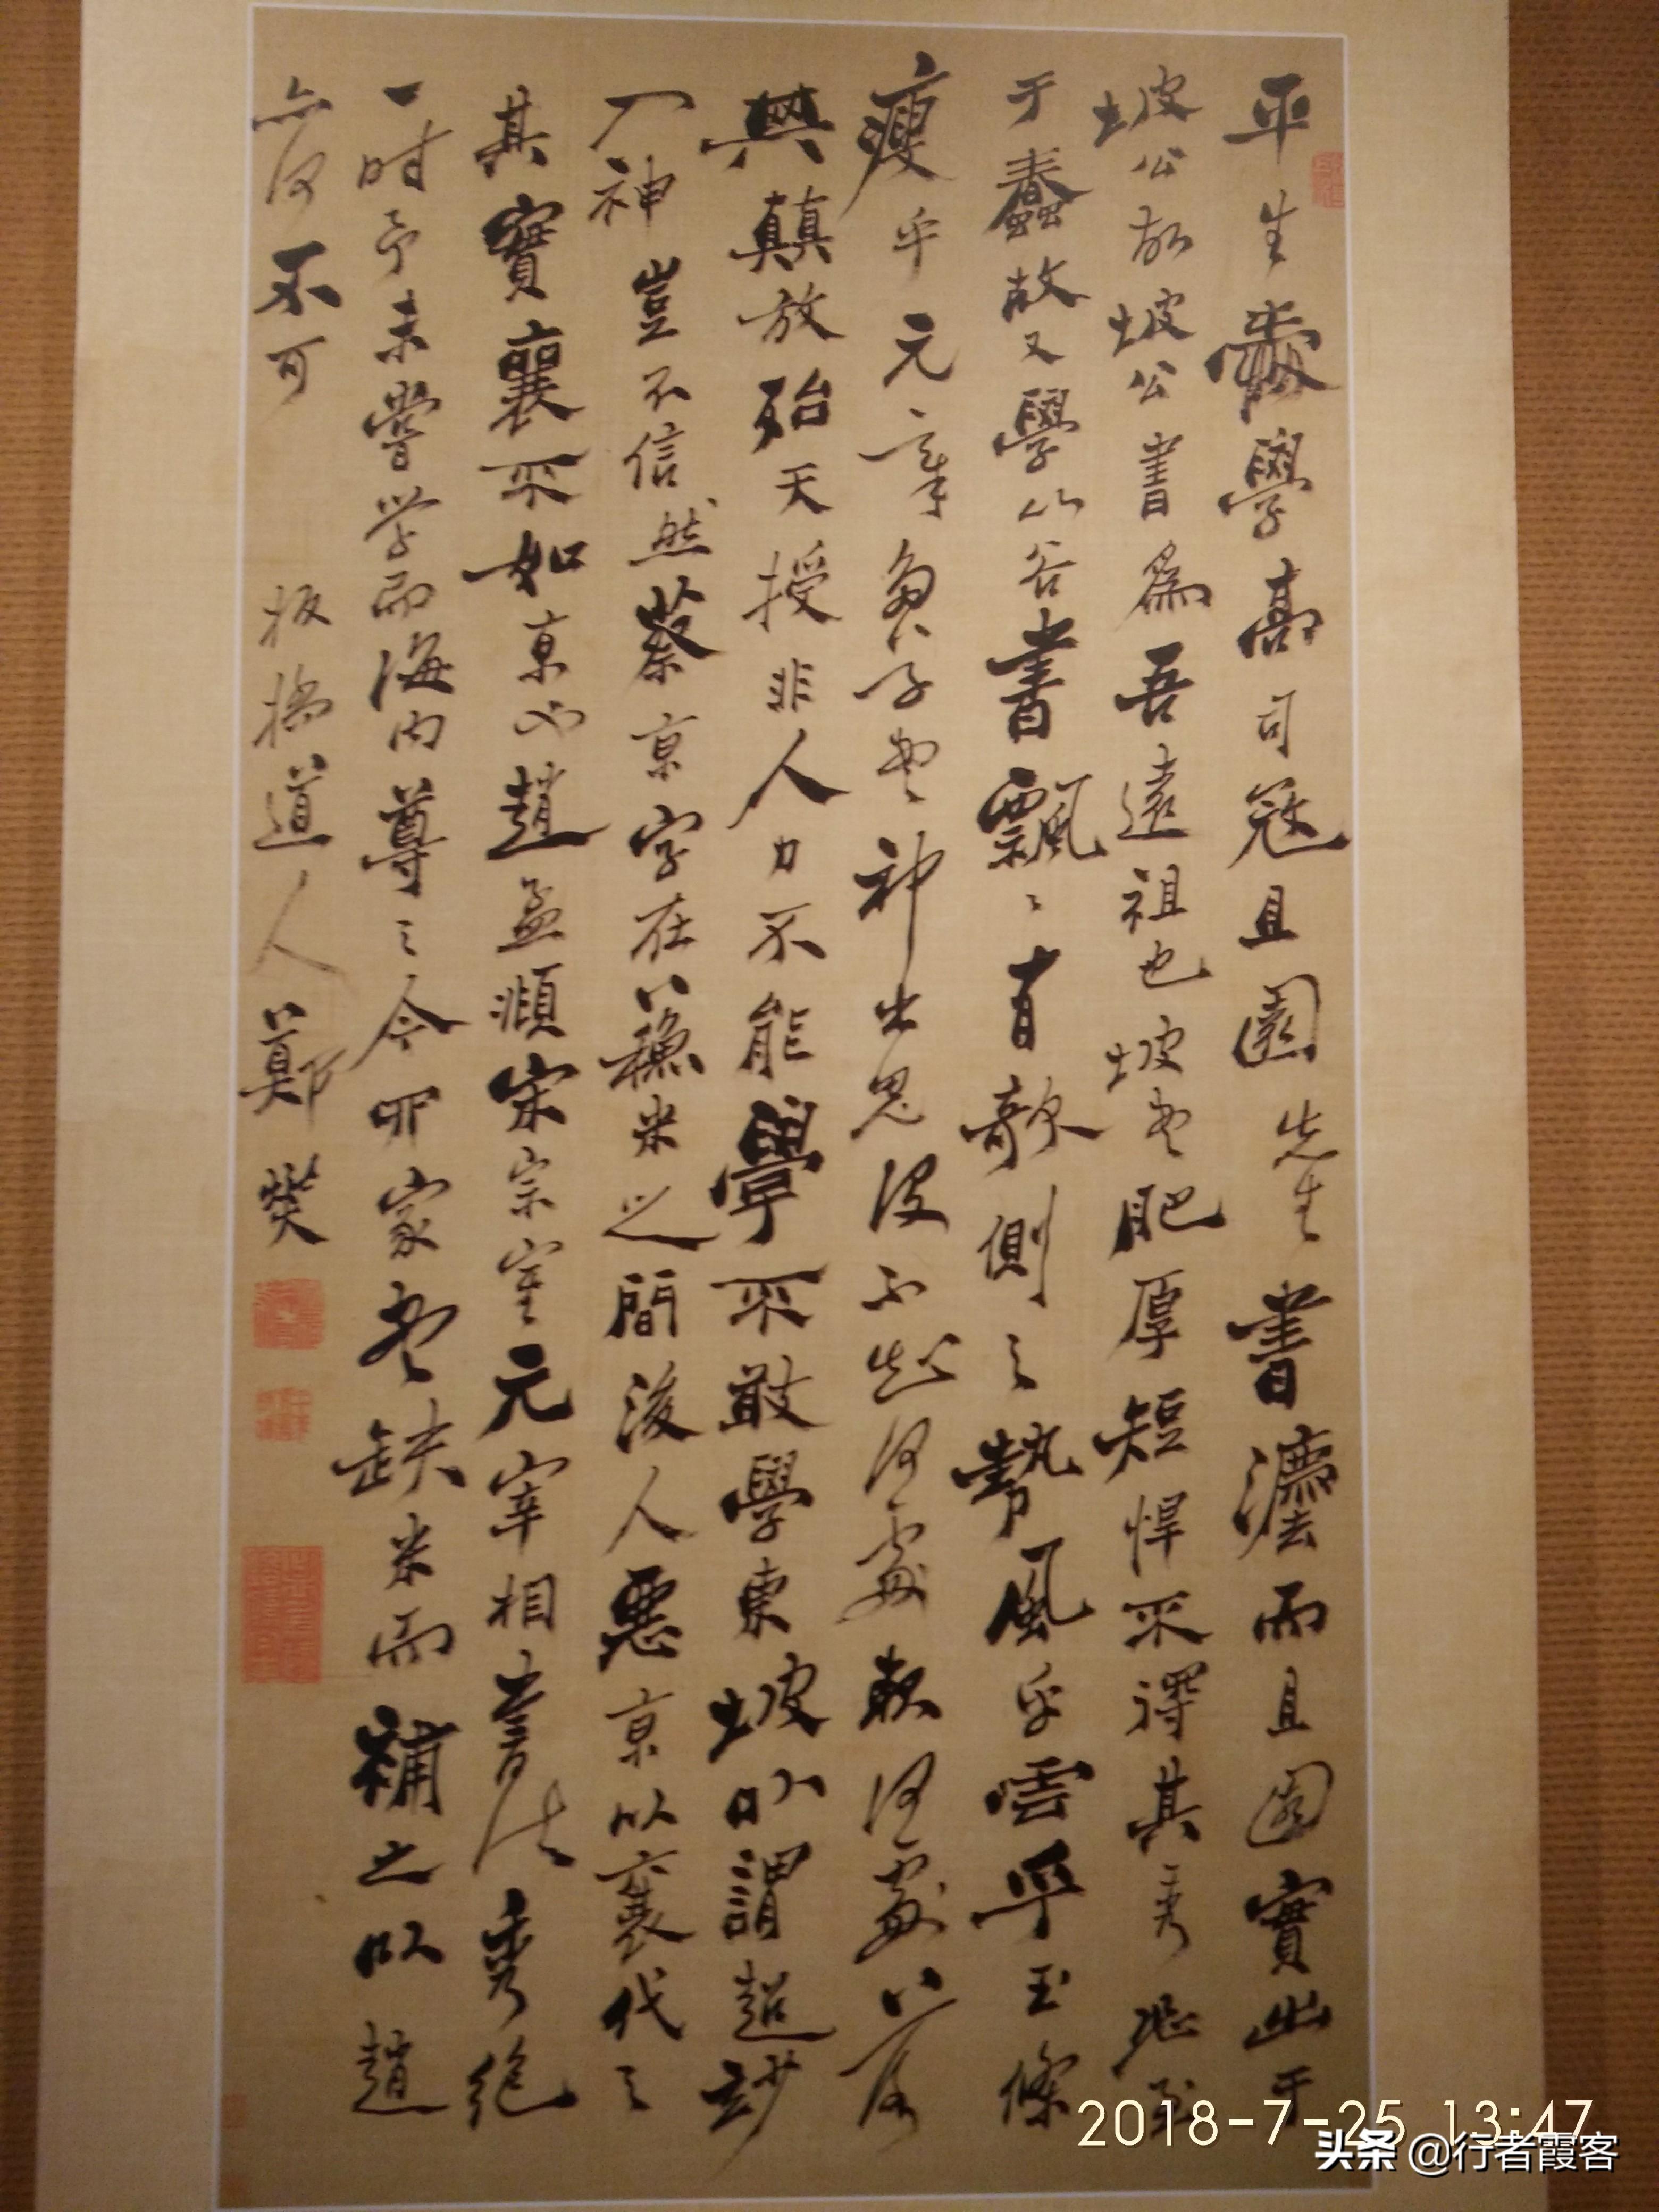 平生愛學高司寇且園先生書灋而且園實出于
坡公故坡公書爲吾遠祖也坡書肥厚短悍不得其秀恐至
于蠢故又學山谷書飄〻有欹側之勢風乎雲乎玉條
瘦乎元章多不書神出鬼沒不知何處起何處落
與顛放殆天授非人力不能學不敢學東坡以謂超妙
入神豈不信然蔡京字在蘇米之間後人惡京以襄代之
其實襄不如京也趙孟頫宋宗室元宰相書法秀絶
一時予未嘗学而海内尊之今四家書缺米而補之以趙
亦何不可 板橋道人鄭燮
2018-7-25 13:47
头条 @行者霞客